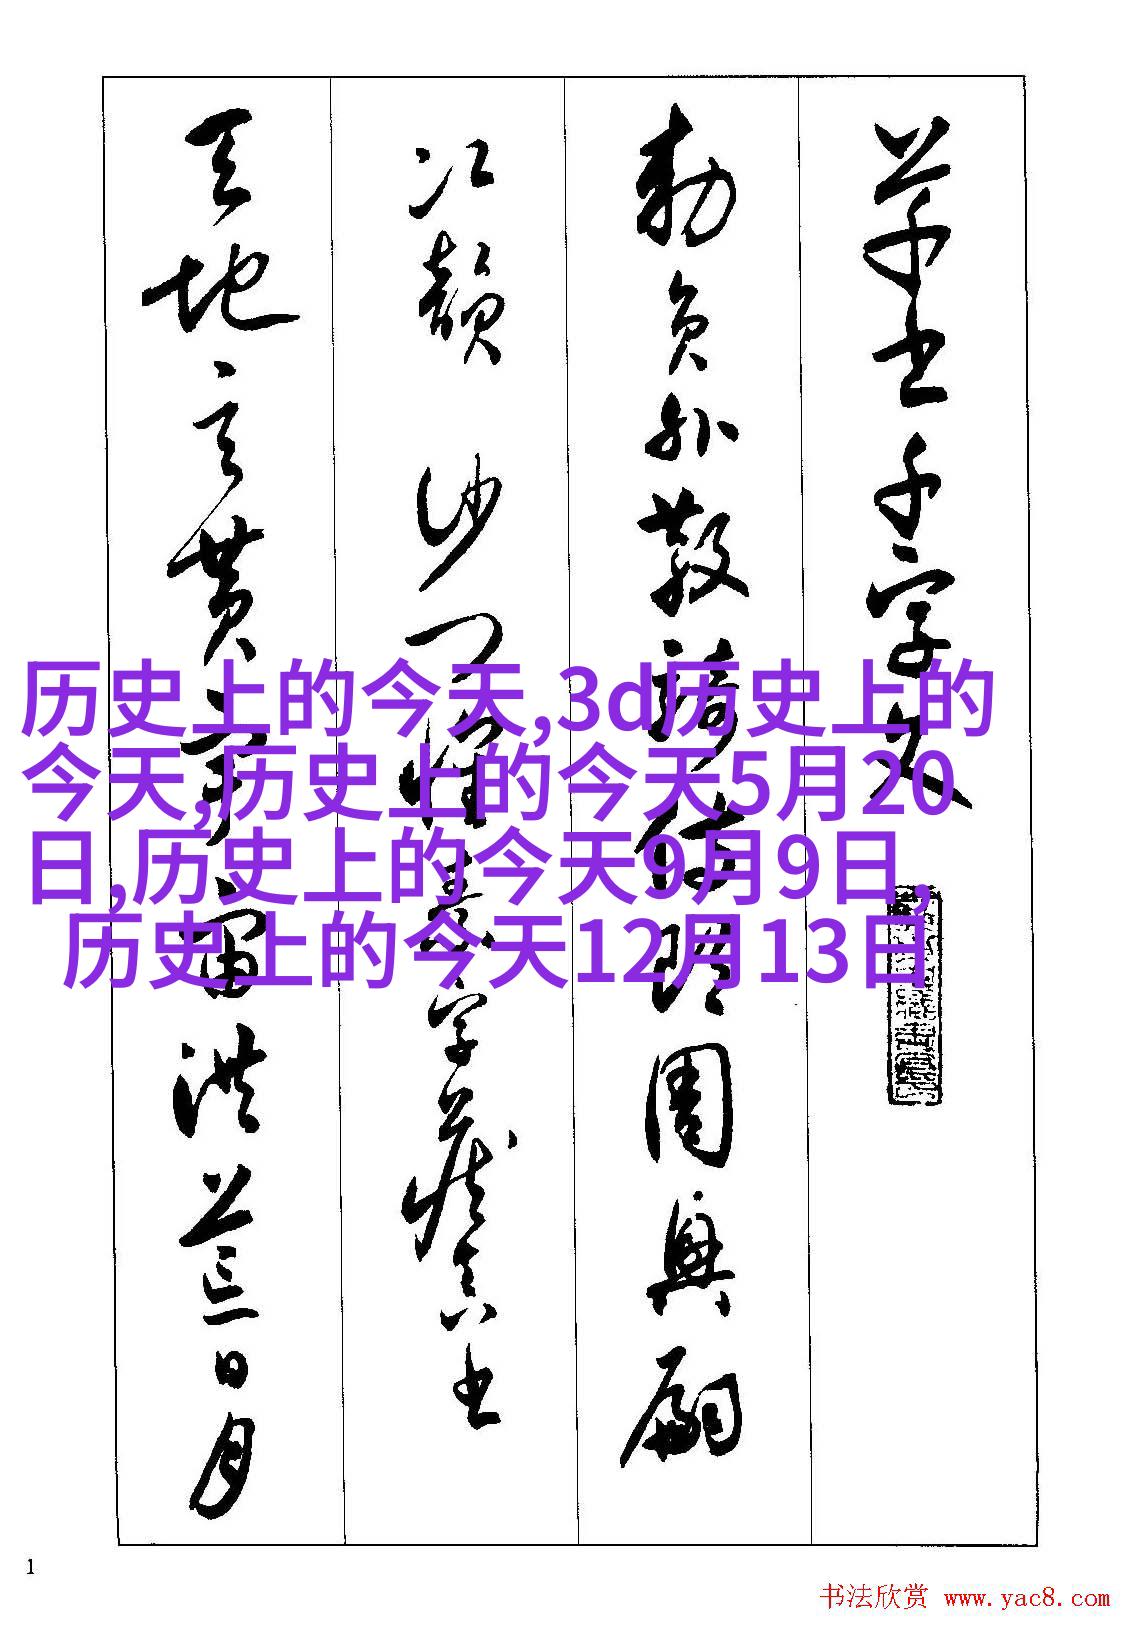 草書千字文
勅員外散騎侍郎周興嗣
次韻 沙門懷素字藏真書
天地玄黃宇宙洪荒日月
历史上的今天,3d历史上的
今天,历史上的今天5月20
日,历史上的今天9月9日,
历史上的今天12月13日
1
书法欣赏 www.yac8.com